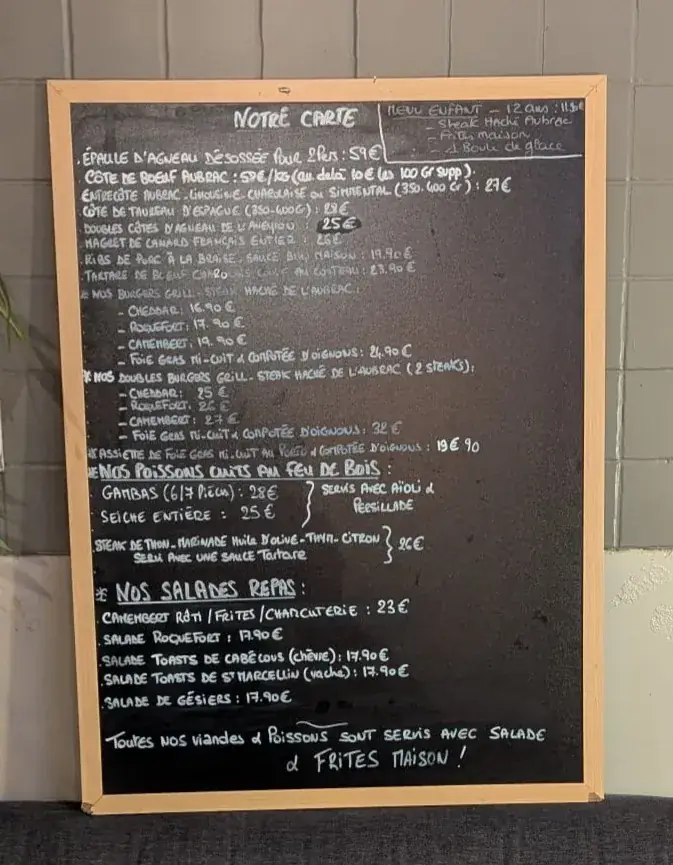 NOTRE CARTE
MENU ENFANT - 12 ans :
- Steak Haché Aubrac
- Frites maison
- 1 Boule de glace
. ÉPAULE D'AGNEAU DÉSOSSÉE Pour 2 Pers : 59€
CÔTE DE BOEUF AUBRAC : /KG (au delà 10€ les 100 Gr supp).
ENTRECÔTE AUBRAC - LIMOUSINE - CHAROLAISE ou SIMMENTAL (350.400 Gr) : 27€
. CÔTE DE TAUREAU D'ESPAGNE (350-400Gr) : 28€
. DOUBLES CÔTES D'AGNEAU DE L'AVEYRON : 25€
. MAGRET DE CANARD FRANÇAIS ENTIER : 26€
. RIBS DE PORC À LA BRAISE. SAUCE BBQ MAISON : 19.90€
. TARTARE DE BOEUF CHAROLAIS AU COUTEAU : 23.90€
* NOS BURGERS GRILL - STEAK HACHÉ DE L'AUBRAC :
- CHEDDAR : 16.90€
- ROQUEFORT : 17.90€
- CAMEMBERT : 19.90€
- FOIE GRAS MI-CUIT & COMPOTÉE D'OIGNONS : 24.90€
* NOS DOUBLES BURGERS GRILL - STEAK HACHÉ DE L'AUBRAC (2 STEAKS) :
- CHEDDAR : 25€
- ROQUEFORT : 26€
- CAMEMBERT : 27€
- FOIE GRAS MI-CUIT & COMPOTÉE D'OIGNONS : 32€
* ASSIETTE DE FOIE GRAS MI-CUIT AU PORTO & COMPOTÉE D'OIGNONS : 19€90
* NOS POISSONS CUITS AU FEU DE BOIS :
GAMBAS (6/7 Pièces) : 28€
SEICHE ENTIÈRE : 25€
SERVIS AVEC AÏOLI &
PERSILLADE
. STEAK DE THON - MARINADE Huile D'OLIVE - THYM - CITRON
SERVI AVEC UNE SAUCE Tartare
26€
* NOS SALADES REPAS :
. CAMEMBERT RÔTI / FRITES / CHARCUTERIE : 23€
. SALADE ROQUEFORT : 17.90€
. SALADE TOASTS DE CABÉCOUS (chèvre) : 17.90€
. SALADE TOASTS DE ST MARCELLIN (vache) : 17.90€
. SALADE DE GÉSIERS : 17.90€
TOUTES NOS VIANDES & POISSONS SONT SERVIS AVEC SALADE
& FRITES MAISON !